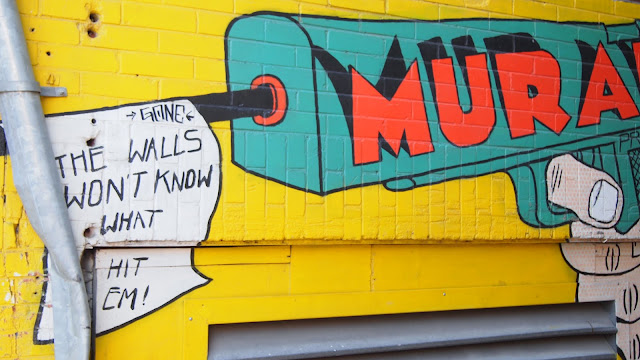 MURA
→GONE←
THE WALLS
WON'T KNOW
WHAT
HIT
EM!